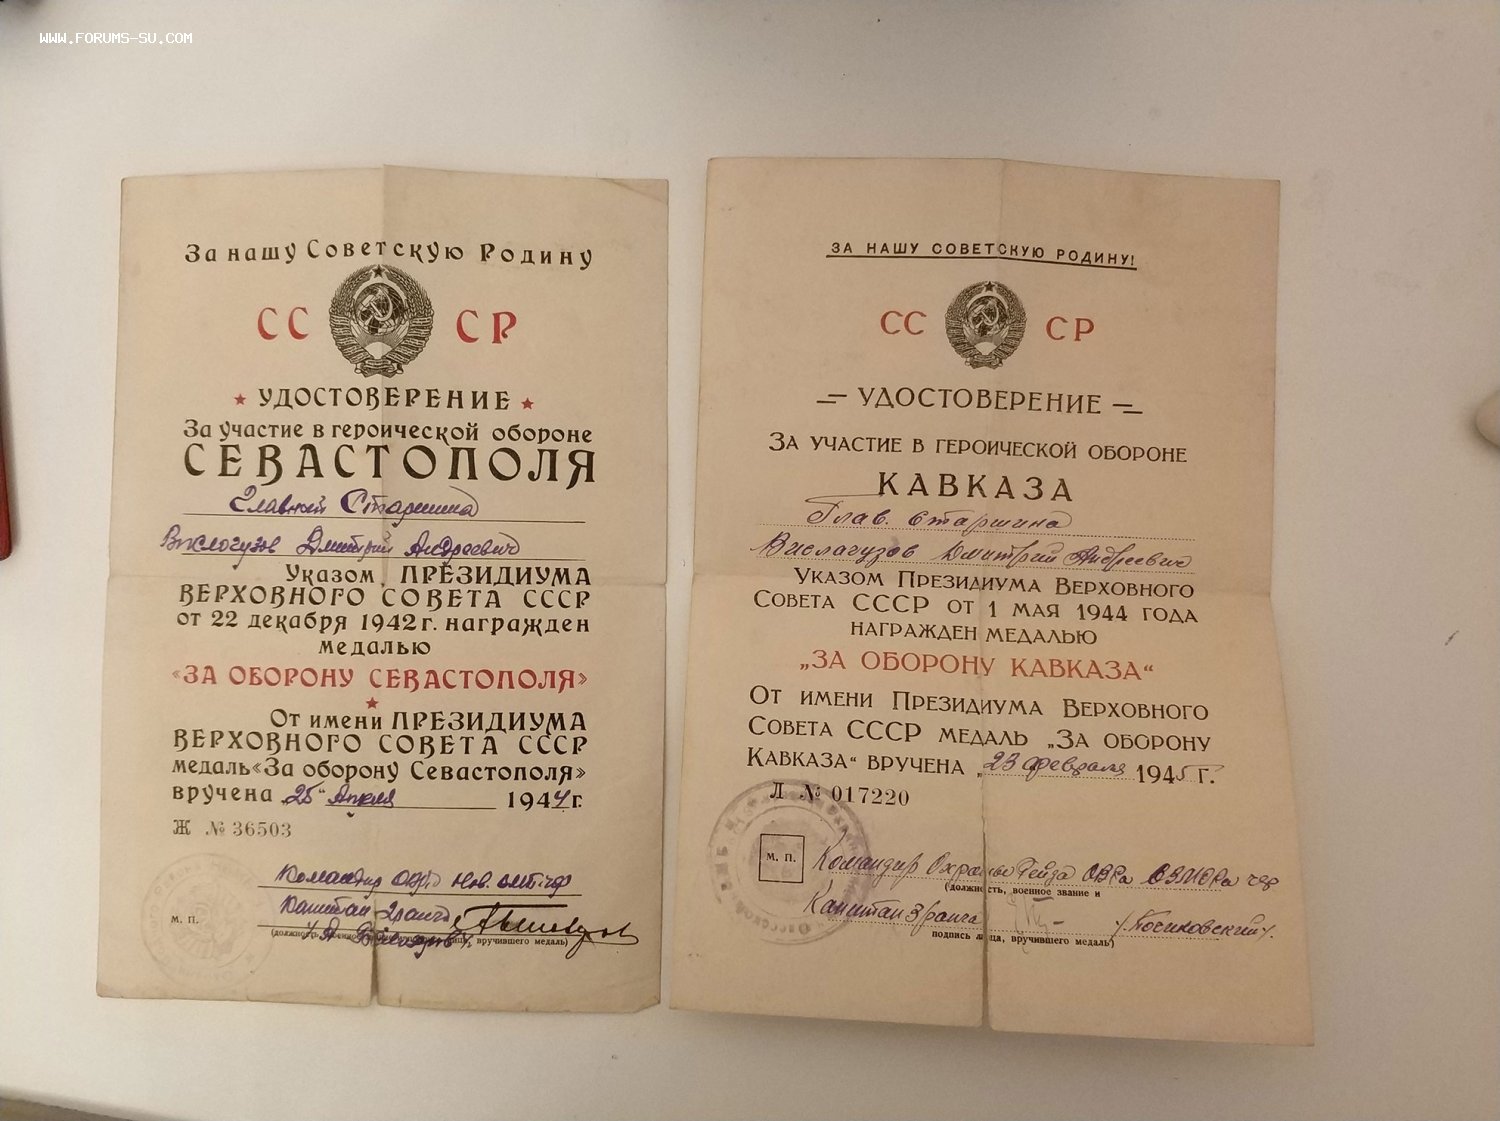 WWW.FORUMS-SU.COM
За нашу Советскую Родину
СС СР
УДОСТОВЕРЕНИЕ
За участие в героической обороне
СЕВАСТОПОЛЯ
Главный Старшина
Вислогузов Дмитрий Андреевич
Указом ПРЕЗИДИУМА
ВЕРХОВНОГО СОВЕТА СССР
от 22 декабря 1942 г. награжден
медалью
«ЗА ОБОРОНУ СЕВАСТОПОЛЯ»
От имени ПРЕЗИДИУМА
ВЕРХОВНОГО СОВЕТА СССР
медаль «За оборону Севастополя»
вручена 25 Апреля 1944 г.
Ж № 36503
Командир ОВР
Капитан 2 ранга
М. П.
вручившего медаль)
ЗА НАШУ СОВЕТСКУЮ РОДИНУ!
СС СР
УДОСТОВЕРЕНИЕ
ЗА УЧАСТИЕ В ГЕРОИЧЕСКОЙ ОБОРОНЕ
КАВКАЗА
Глав. старшина
Вислагузов Дмитрий Андреевич
УКАЗОМ ПРЕЗИДИУМА ВЕРХОВНОГО
СОВЕТА СССР ОТ 1 МАЯ 1944 ГОДА
НАГРАЖДЕН МЕДАЛЬЮ
„ЗА ОБОРОНУ КАВКАЗА“
ОТ ИМЕНИ ПРЕЗИДИУМА ВЕРХОВНОГО
СОВЕТА СССР МЕДАЛЬ „ЗА ОБОРОНУ
КАВКАЗА“ ВРУЧЕНА „23 февраля 1945 г.
Л № 017220
М. П.
Командир Охраны Рейда ОВРа
(должность, военное звание и
Капитан 3 ранга
подпись лица, вручившего медаль)